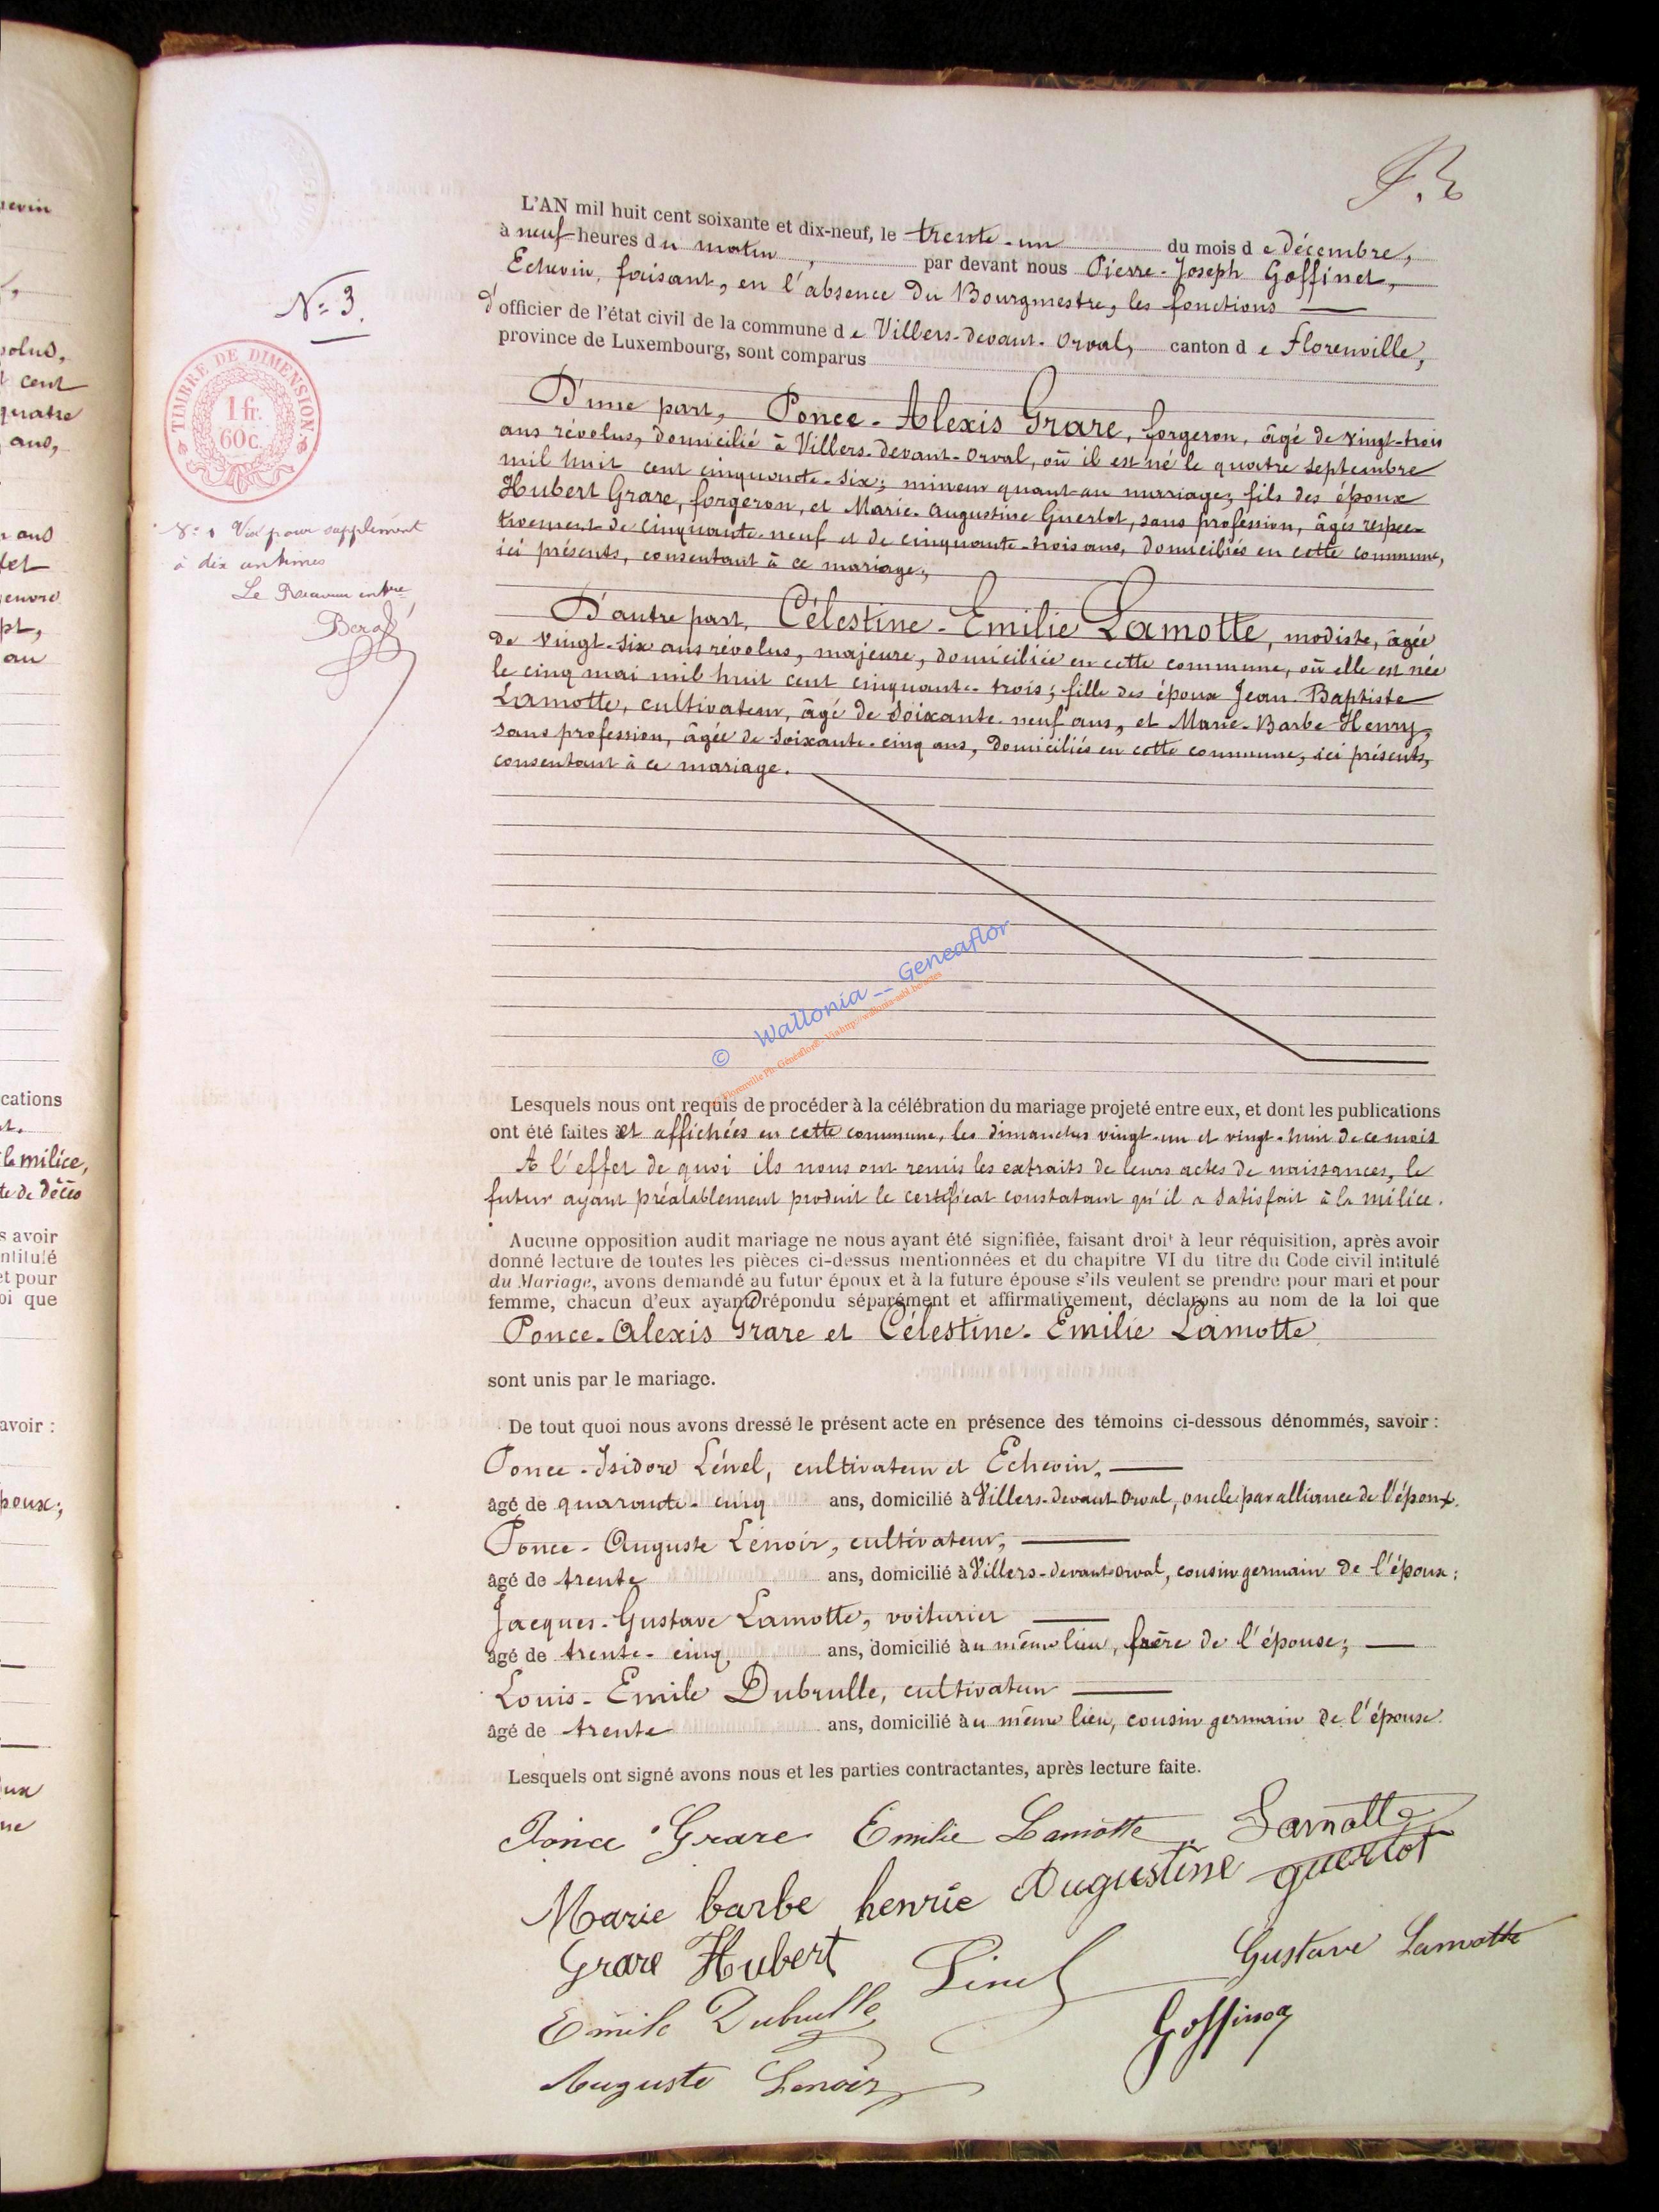 L'AN mil huit cent soixante et dix-neuf, le trente-un du mois de décembre,
à neuf heures du matin, par devant nous Pierre-Joseph Goffinet,
Echevin, faisant, en l'absence du Bourgmestre, les fonctions
d'officier de l'état civil de la commune de Villers-devant-Orval, canton de Florenville,
province de Luxembourg, sont comparus
N° 3.
TIMBRE DE DIMENSION
1 fr.
60c.
N° 1 Visé pour supplément
à dix centimes
Le Receveur
D'une part, Ponce-Alexis Grare, forgeron, âgé de vingt-trois
ans révolus, domicilié à Villers-devant-Orval, où il est né le quatre septembre
mil huit cent cinquante-six; mineur quant au mariage; fils des époux
Hubert Grare, forgeron, et Marie-Augustine Guerlot, sans profession, âgés respec-
tivement de cinquante-neuf et de cinquante-trois ans, domiciliés en cette commune,
ici présents, consentant à ce mariage;
D'autre part, Célestine-Emilie Lamotte, modiste, âgée
de vingt-six ans révolus, majeure, domiciliée en cette commune, où elle est née
le cinq mai mil huit cent cinquante-trois; fille des époux Jean-Baptiste
Lamotte, cultivateur, âgé de soixante-neuf ans, et Marie-Barbe Henry,
sans profession, âgée de soixante-cinq ans, domiciliés en cette commune, ici présents,
consentant à ce mariage.
© Wallonia -- Geneaflor
Lesquels nous ont requis de procéder à la célébration du mariage projeté entre eux, et dont les publications
ont été faites et affichées en cette commune, les dimanches vingt-un et vingt-huit de ce mois
A l'effet de quoi ils nous ont remis les extraits de leurs actes de naissances, le
futur ayant préalablement produit le certificat constatant qu'il a satisfait à la milice.
Aucune opposition audit mariage ne nous ayant été signifiée, faisant droit à leur réquisition, après avoir
donné lecture de toutes les pièces ci-dessus mentionnées et du chapitre VI du titre du Code civil intitulé
du Mariage, avons demandé au futur époux et à la future épouse s'ils veulent se prendre pour mari et pour
femme, chacun d'eux ayant répondu séparément et affirmativement, déclarons au nom de la loi que
Ponce-Alexis Grare et Célestine-Emilie Lamotte
sont unis par le mariage.
De tout quoi nous avons dressé le présent acte en présence des témoins ci-dessous dénommés, savoir :
Ponce-Isidore Linel, cultivateur et Echevin,
âgé de quarante-cinq ans, domicilié à Villers-devant-Orval, oncle par alliance de l'époux.
Ponce-Auguste Lenoir, cultivateur,
âgé de trente ans, domicilié à Villers-devant-Orval, cousin germain de l'époux;
Jacques-Gustave Lamotte, voiturier
âgé de trente-cinq ans, domicilié au même lieu, frère de l'épouse;
Louis-Emile Dubrulle, cultivateur
âgé de trente ans, domicilié au même lieu, cousin germain de l'épouse.
Lesquels ont signé avons nous et les parties contractantes, après lecture faite.
Ponce Grare Emilie Lamotte Lamotte
Marie barbe henrie Augustine guerlot
Grare Hubert Linel Gustave Lamotte
Emile Dubrulle Goffinet
Auguste Lenoir